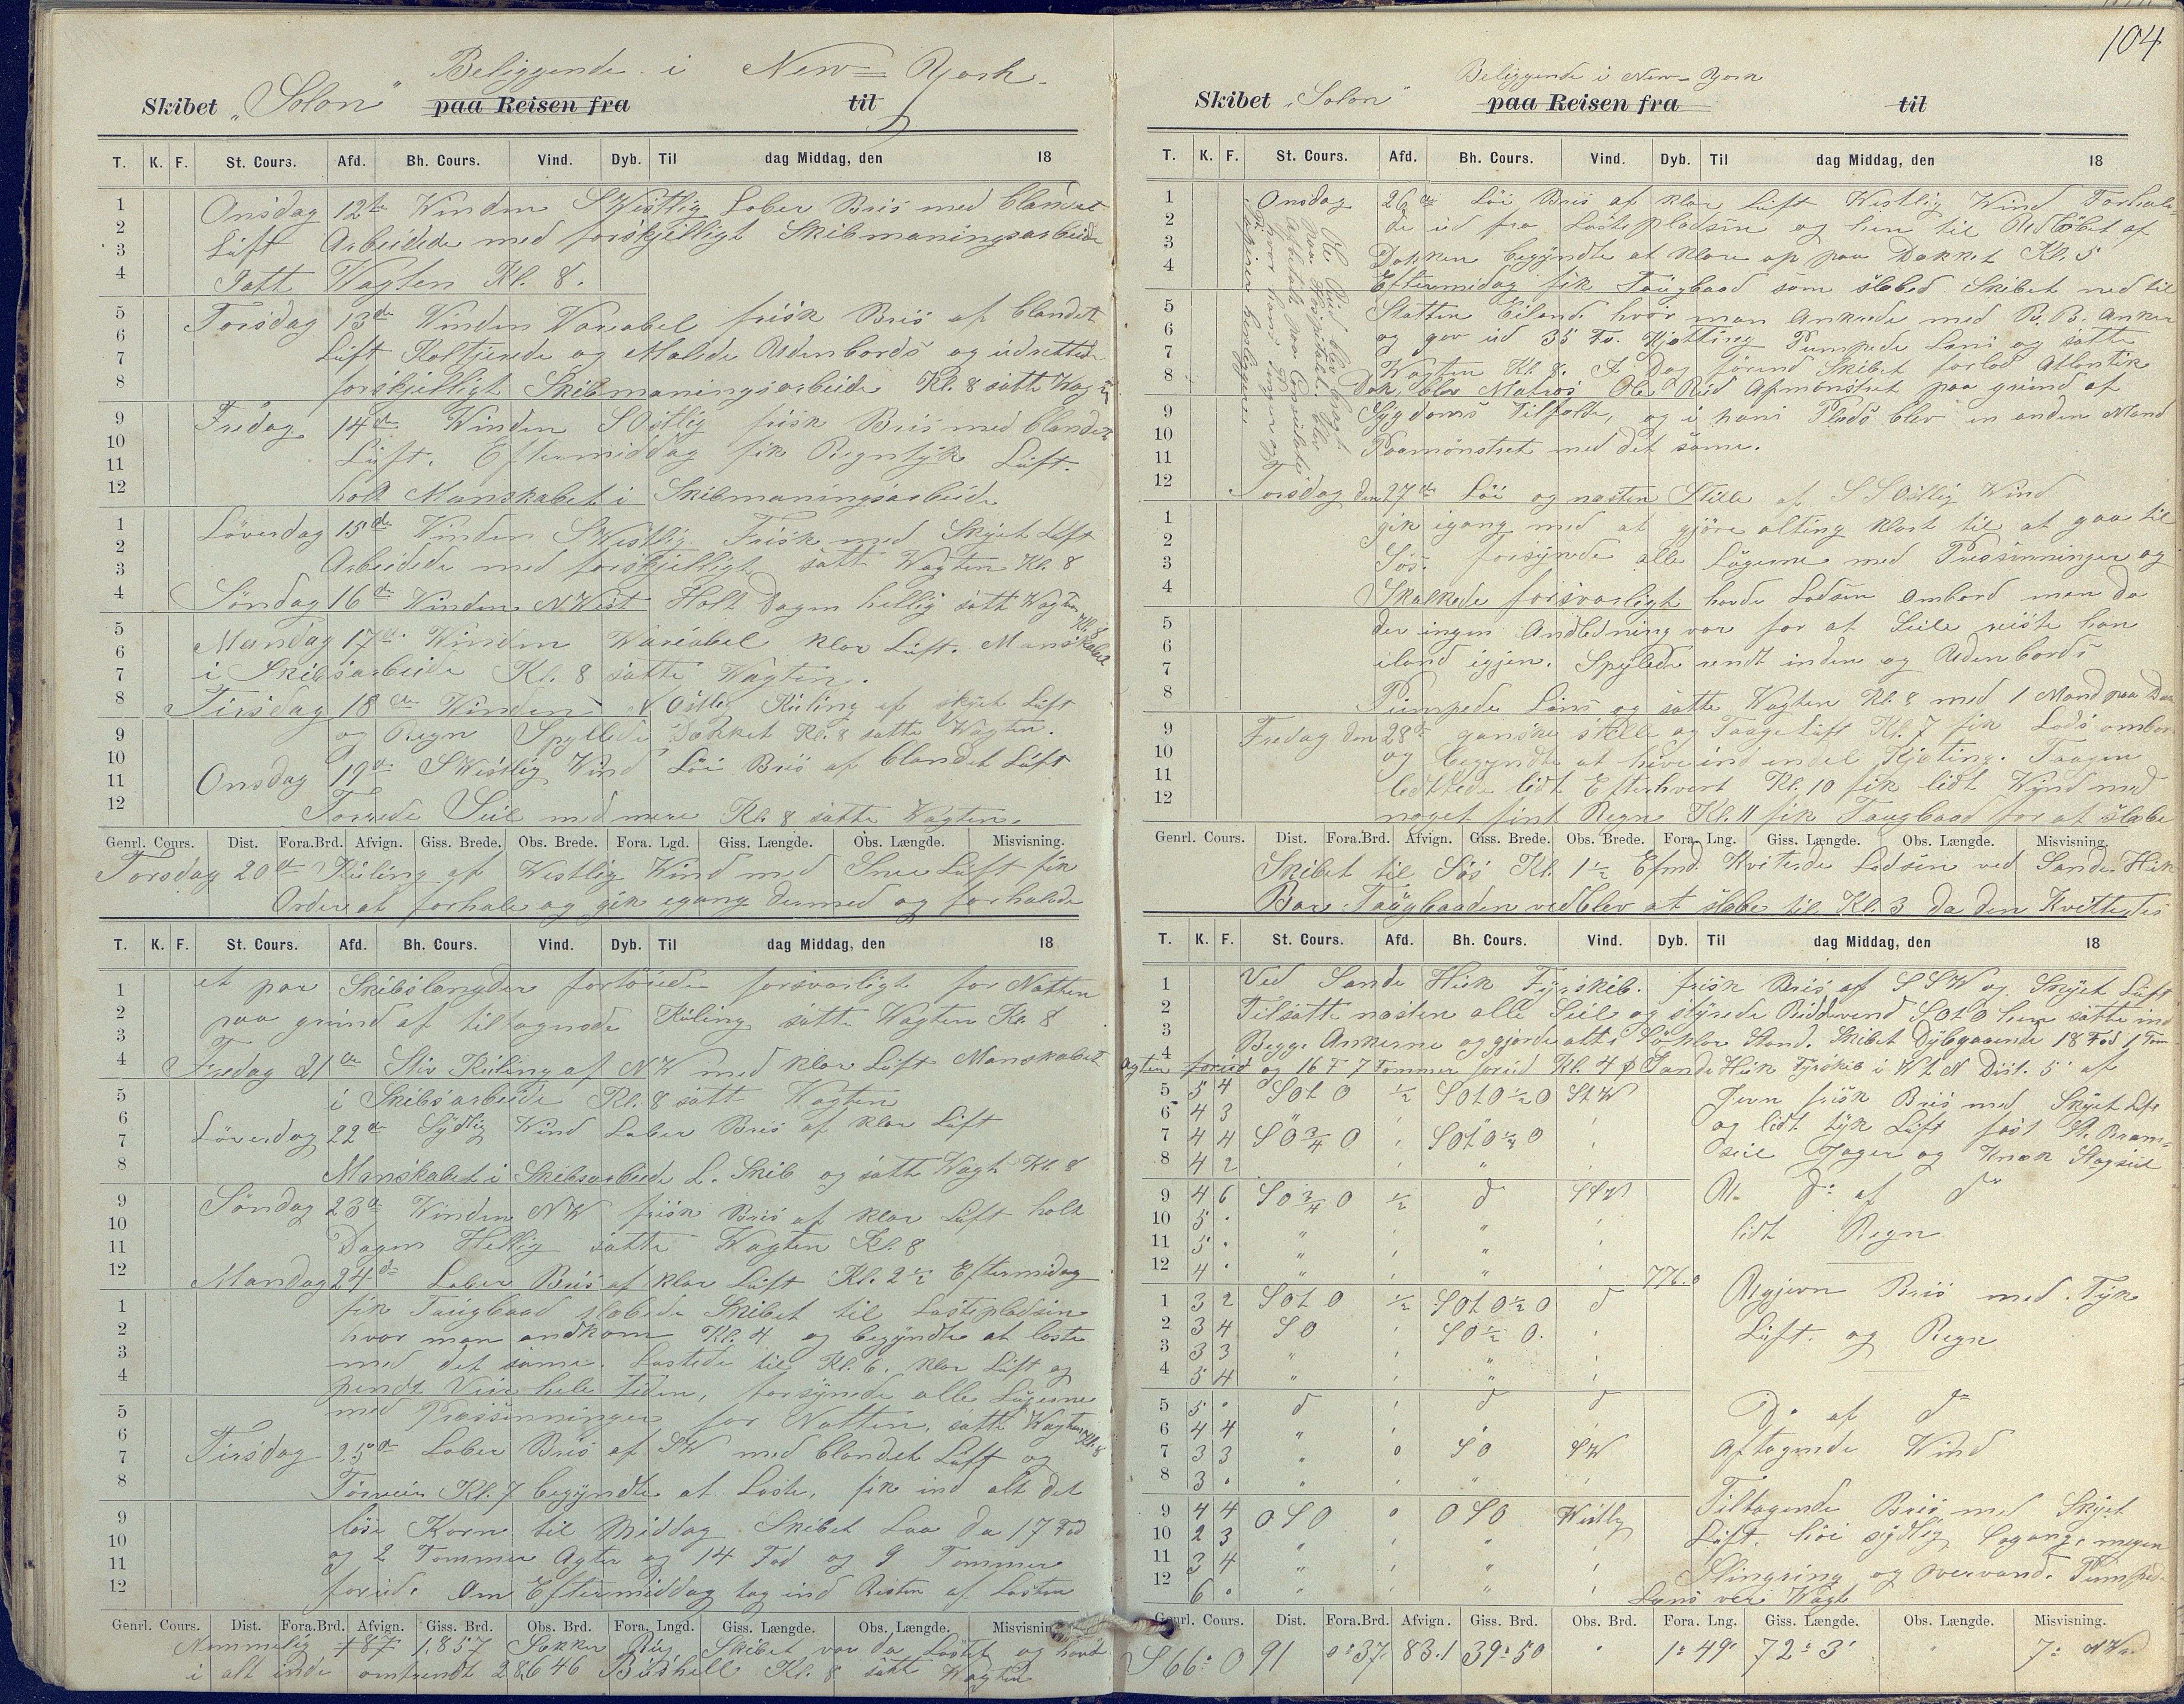 Beliggende i New=York
Skibet „Solon" paa Reisen fra til
T. K. F. St. Cours. Afd. Bh. Cours. Vind. Dyb. Til dag Middag, den 18
1 Onsdag 12te Winden SWestlig Laber Bris med blandet
2 Luft Arbeidede med forskjelligt Skibmaningsarbeide
3
4 Satt Wagten Kl. 8.
5 Torsdag 13de Winden Variabel frisk Bris af blandet
6
7 Luft Koltjerede og Malede Udenbords og udrettede
8 forskjelligt Skibmaningsarbeide Kl. 8 satte Wagten
9 Fredag 14de Winden SOstlig frisk Bris med blandet
10 Luft. Eftermiddag fik Regntyk Luft.
11
12 holt Manskabet i Skibmaningsarbeide
1 Löverdag 15de Winden SWestlig Frisk med Skyet Luft
2
3 Arbeidede med forskjelligt satte Wagten Kl. 8
4 Söndag 16de Winden NWest Holt Dagen hellig satt Wagten Kl. 8
5 Mandag 17de Winden Wariabel klar Luft. Manskabet
6
7 i Skibsarbeide Kl. 8 satte Wagten.
8 Tirsdag 18de Winden NOstlig Kuling af skyet Luft
9 og Regn Spyllede Dækket Kl. 8 satte Wagten.
10
11 Onsdag 19de SWestlig Wind Löi Bris af blandet Luft
12 Torrede Seil med mere Kl. 8 satte Wagten.
Genrl. Cours. Dist. Fora.Brd. Afvign. Giss. Brede. Obs. Brede. Fora. Lgd. Giss. Længde. Obs. Længde. Misvisning.
Torsdag 20de Kuling af Westlig Wind med Snee Luft fik
Order at forhale og gik egang dermed og forhalede
T. K. F. St. Cours. Afd. Bh. Cours. Vind. Dyb. Til dag Middag, den 18
1 et par Skibslængder fortöiede forsvarligt for Natten
2 paa grund af tiltagende Kuling satte Wagten Kl. 8
3
4 Fredag 21de Stiv Kuling af NW med klar Luft Manskabet
5 i Skibsarbeide Kl. 8 satt Wagten
6
7 Löverdag 22de Sydlig Wind Laber Bris af klar Luft
8 Manskabet i Skibsarbeide L. Skib og satte Wagt Kl. 8
9 Söndag 23de Winden NW frisk Bris af klar Luft holt
10
11 Dagen Hellig satte Wagten Kl. 8
12 Mandag 24de Laber Bris af klar Luft Kl. 2½ Eftermidag
1 fik Taugbaad slæbede Skibet til Lastepladsen
2 hvor man andkom Kl. 4 og begyndte at laste
3 med det samme. Lastede til Kl. 6. klar Luft og
4 pendt Veir hele tiden, forsynede alle Lugerne
5 med Præssenninger for Natten, satte Wagten Kl. 8
6
7 Tirsdag 25de Laber Bris af SW med blandet Luft og
8 Törveir Kl. 7 begyndte at Laste, fik ind alt det
9 löse Korn til Middag. Skibet Laa da 17 Fod
10 og 2 Tommer Agter og 14 Fod og 9 Tommer
11
12 forud. Om Eftermiddag tog ind Resten af Lasten
Genrl. Cours. Dist. Fora.Brd. Afvign. Giss. Brd. Obs. Brd. Fora. Lngd. Giss. Længde. Obs. Længde. Misvisning
Nemmelig 1,857 Sækker Rug Skibet var da Lastet og havde
i alt inde omtrendt 28,646 Bushell Kl. 8 satt Wagten
104
Beliggende i New-York
Skibet „Solon" paa Reisen fra til
T. K. F. St. Cours. Afd. Bh. Cours. Vind. Dyb. Til dag Middag, den 18
1 Onsdag 26de Löi Bris af klar Luft Westlig Wind Forhale
2 de ud fra Lastepladsen og hen til Udlöbet af
3 Dokken begyndte at klare op paa Dækket Kl. 5
4 Eftermidag fik Taugbaad som slæbed Skibet ned til
5 Statten Eiland hvor man Ankrede med B.B. Anker
6 og gav ud 35 Fv. Kjætting Pumpede Lens og satte
7 Wagten Kl. 8. I Dag förend Skibet forlod Atlantik
8 Dok, blev Matros Ole Riid Afmönstret paa grund af
9 Sygdoms Tilfælde, og i hans Plads blev en anden Mand
10
11 Paamönstret med det samme.
Ole Riid blev bragt
paa Hospitalet blev
afbetalt paa Consulatet
hvor hans Penger og
Papirer henligger
12 Torsdag den 27de Löi og næsten Stille af SSOstlig Wind
1 gik igang med at gjöre alting klart til at gaa til
2
3 Söis. forsynede alle Lugerne med Pressenninger og
4 Skalkede forsvarligt havde Lodsen Ombord men da
5 der ingen Andledning var for at Seile reiste han
6
7 iland igjen. Spylede rundt inden og Udenbords
8 Pumpede Læns og satte Wagten Kl. 8 med 1 Mand paa Dæk
9 Fredag den 28de ganske stille og Taage Luft Kl. 7 fik Lods ombord
10 og begyndte at hive ind endel Kjæting. Taagen
11 lettede lidt Efterhvert Kl. 10 fik lidt Wind med
12 noget fint Regn Kl. 11 fik Taugbaad for at slæbe
Genrl. Cours. Dist. Fora.Brd. Afvign. Giss. Brede. Obs. Brede. Fora. Lng. Giss. Længde. Obs. Længde. Misvisning.
Skibet til Söis Kl. 1½ Efmd. Kviterede Lodsen ved Sande Huk
Bare Taugbaaden vedblev at slæbe til Kl. 3 da den Kvittertes
T. K. F. St. Cours. Afd. Bh. Cours. Vind. Dyb. Til dag Middag, den 18
1 Ved Sande Huk Fyrskib. frisk Bris af SSW og Skyet Luft
2 Tilsatte næsten alle Seil og styrede Biddevend SOtO hen satte ind
3 Begge Ankerne og gjorde alt i Söklar Stand. Skibet Dybgaaende 18 Fod 1 Tom
4 Agter forud og 16 F 7 Tommer forud Kl. 4 p Sande Huk Fyrskib i WtN Dist. 5' af
5 5 4 SOtO ½ SOtO½O StW Jevn frisk Bris med Skyet Luft
6 4 3 " " og lidt tyk Luft fast St. Bram=
7 4 4 SO¾O SOtO½O seil Jager og Knæk Stagseil
8 4 2 "
9 4 6 SO¾O ½ do SSW Al. do af do
10 5 " " lidt Regn
11 5 " "
12 4 " " 776.0
1 3 2 SOtO ½ SOtO½O do Ugjevn Bris med Tyk
2 3 4 SO SO½O. Luft. og Regn
3 3 3 " "
4 5 4 "
5 5 do do do do af do
6 4 4 " " aftagende Wind
7 3 3 " 0 SO SW
8 3 "
9 4 4 OSO 0 OSO Westlig Tiltagende Bris med Skyet
10 2 3 " " Luft. höi sydlig Sögang, megen
11 3 4 " " Slingring og overvand. Pumpede
12 6 " " Læns ver Wagt
Genrl. Cours. Dist. Fora.Brd. Afvign. Giss. Brd. Obs. Brd. Fora. Lng. Giss. Længde. Obs. Længde. Misvisning.
S 66° O 91 0°37' 83.1 39°50 1°49' 72°3' 7° NW.